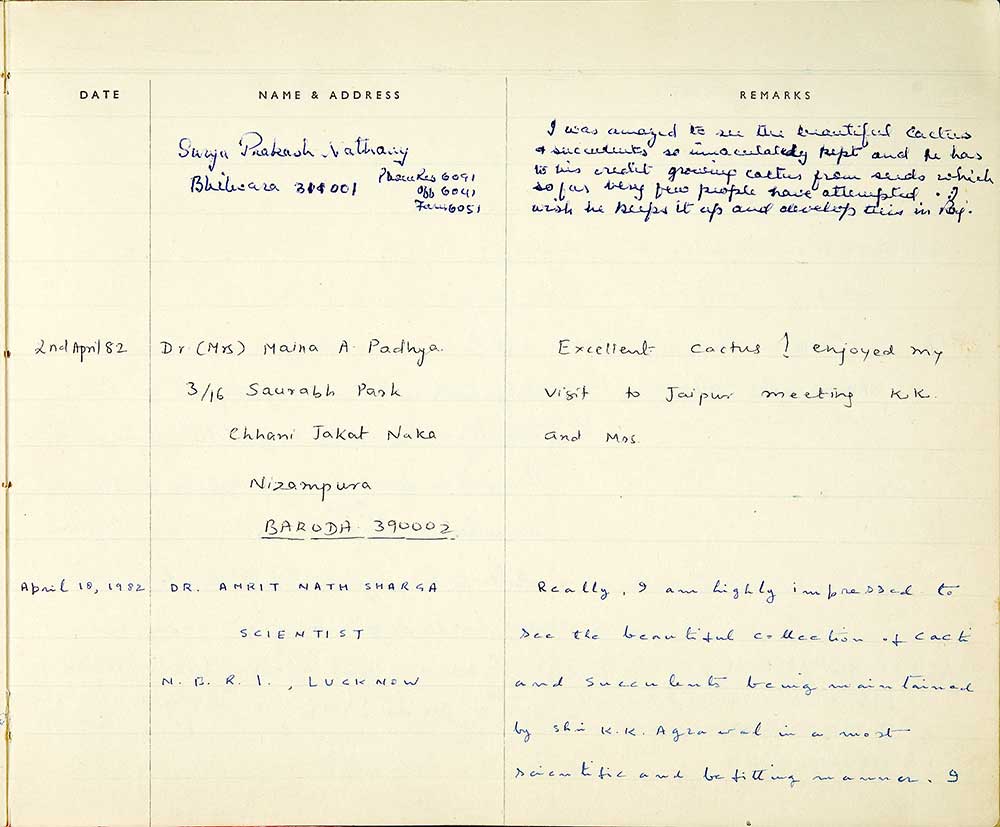 DATE
NAME & ADDRESS
REMARKS
Surya Prakash Nathany
Bhilwara 311001
Phone Res 6091
Off 6041
6051
I was amazed to see the beautiful cactus
& succulents so imaculately kept and he has
to his credit growing cactus from seeds which
so far very few people have attempted. I
wish he keeps it up and develop this in Raj.
2nd April 82
Dr. (Mrs) Maina A. Padhya.
3/16 Saurabh Park
Chhani Jakat Naka
Nizampura
BARODA 390002
Excellent cactus! enjoyed my
visit to Jaipur meeting K.K.
and Mrs.
April 18, 1982
DR. AMRIT NATH SHARGA
SCIENTIST
N. B. R. I., LUCKNOW
Really, I am highly impressed to
see the beautiful collection of cacti
and succulents being maintained
by Shri K.K. Agrawal in a most
scientific and befitting manner. I